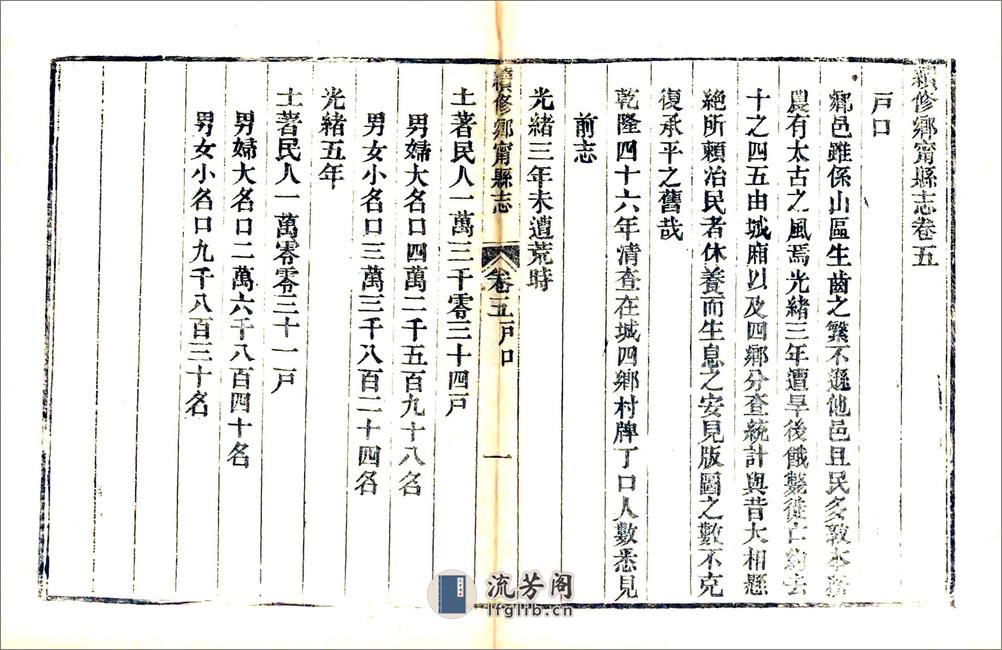 續修鄉甯縣志卷五
戸口
鄉邑雖係山區生齒之繁不遜他邑且民多敦本務
農有太古之風焉光緒三年遭旱後餓斃徙亡約去
十之四五由城廂以及四鄉分查統計與昔大相懸
絶所賴治民者休養而生息之安見版圖之數不克
復承平之舊哉
乾隆四十六年清查在城四鄉村牌丁口人數悉見
前志
光緒三年未遭荒時
續修鄉甯縣志
卷五戸口
一
土著民人一萬三千零三十四戸
男婦大名口四萬二千五百九十八名
男女小名口三萬三千八百二十四名
光緒五年
土著民人一萬零零三十一戸
男婦大名口二萬六千八百四十名
男女小名口九千八百三十名
流芳阁
lfglib.com